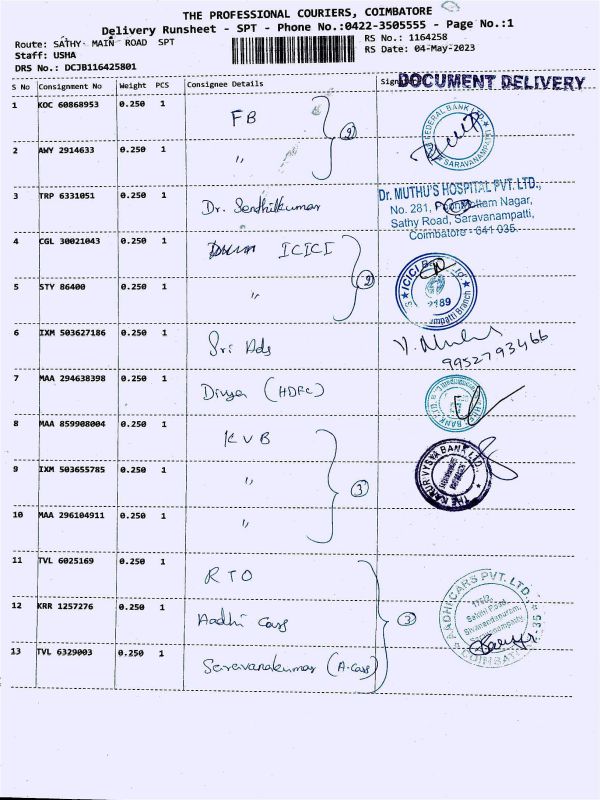 THE PROFESSIONAL COURIERS, COIMBATORE
Delivery Runsheet - SPT - Phone No.:0422-3505555 - Page No.:1
Route: SATHY MAIN ROAD SPT
RS No.: 1164258
Staff: USHA
RS Date: 04-May-2023
DRS No.: DCJB116425801
S No Consignment No Weight PCS Consignee Details
DOCUMENT DELIVERY
1 KOC 60868953 0.250 1 FB
2
FEDERAL BANK LTD.
SARAVANAMPATTI
2 AWY 2914633 0.250 1 "
3 TRP 6331051 0.250 1 Dr. Senthilkumar
Dr. MUTHU'S HOSPITAL PVT. LTD.,
No. 281, Nagar,
Sathy Road, Saravanampatti,
Coimbatore - 641 035.
4 CGL 30021043 0.250 1 ICICI
2
ICICI Bank
2189
Branch
5 STY 86400 0.250 1 "
6 IXM 503627186 0.250 1 Sri Ads
9952793466
7 MAA 294638398 0.250 1 Divya (HDFC)
BANK LTD.
8 MAA 859908004 0.250 1 KVB
3
THE KARUR VYSYA BANK LTD.,
9 IXM 503655785 0.250 1 "
10 MAA 296104911 0.250 1 "
11 TVL 6025169 0.250 1 RTO
12 KRR 1257276 0.250 1 Aadhi Cars
3
AADHI CARS PVT. LTD.,
Sathy Road,
Sivanandapuram,
COIMBATORE - 35
13 TVL 6329003 0.250 1 Saravanakumar (A.Cars)